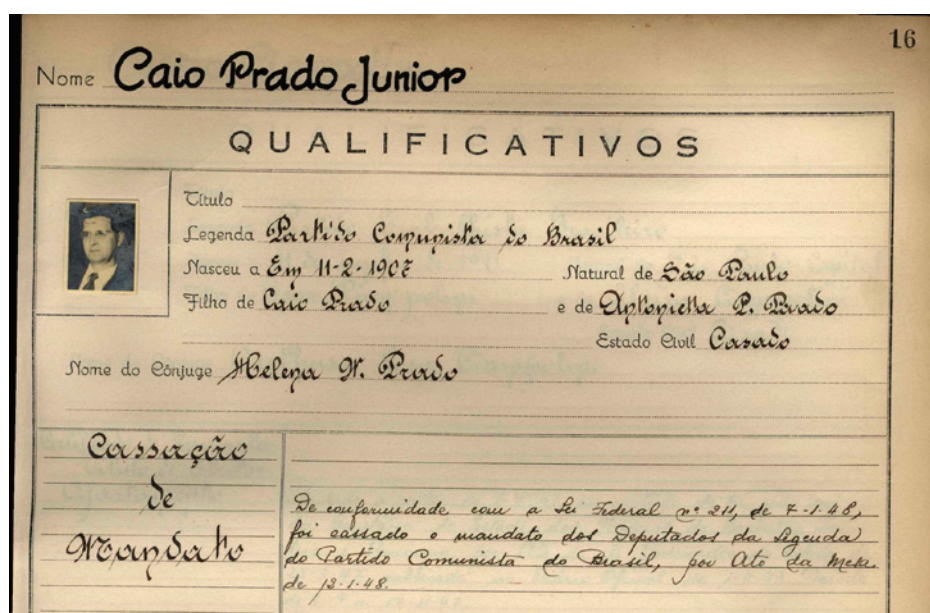 16
Nome Caio Prado Junior
QUALIFICATIVOS
Título
Legenda Partido Comunista do Brasil
Nasceu a Em 11-2-1907 Natural de São Paulo
Filho de Caio Prado e de Antonieta P. Prado
Estado Civil Casado
Nome do Cônjuge Helena N. Prado
Cassação
de
Mandato
De conformidade com a Lei Federal nº 211, de 7-1-48,
foi cassado o mandato dos Deputados da Legenda
do Partido Comunista do Brasil, por Ato da Mesa
de 12-1-48.